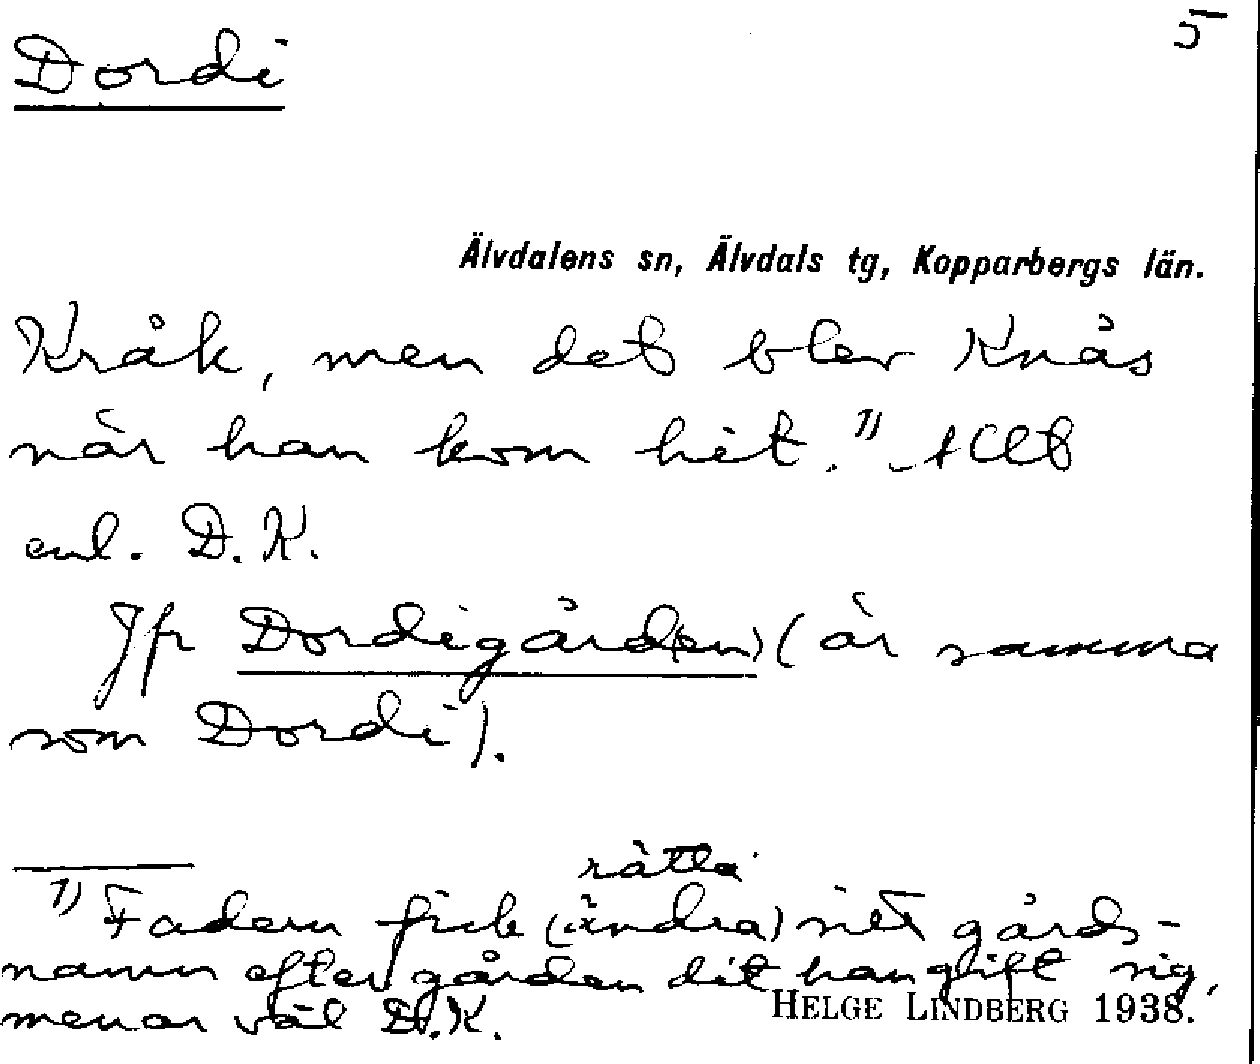 Dordi
5
Älvdalens sn, Älvdals tg, Kopparbergs län.
Kråk, men det blev Knås
när han kom hit. 1) Allt
enl. D.K.
Jfr Dordigård(en) (är samma
som Dordi).
rätta
1) Fadern fick (ändra) net gårds-
namn efter gården dit han gift sig,
menar väl D.K.
HELGE LINDBERG 1938.